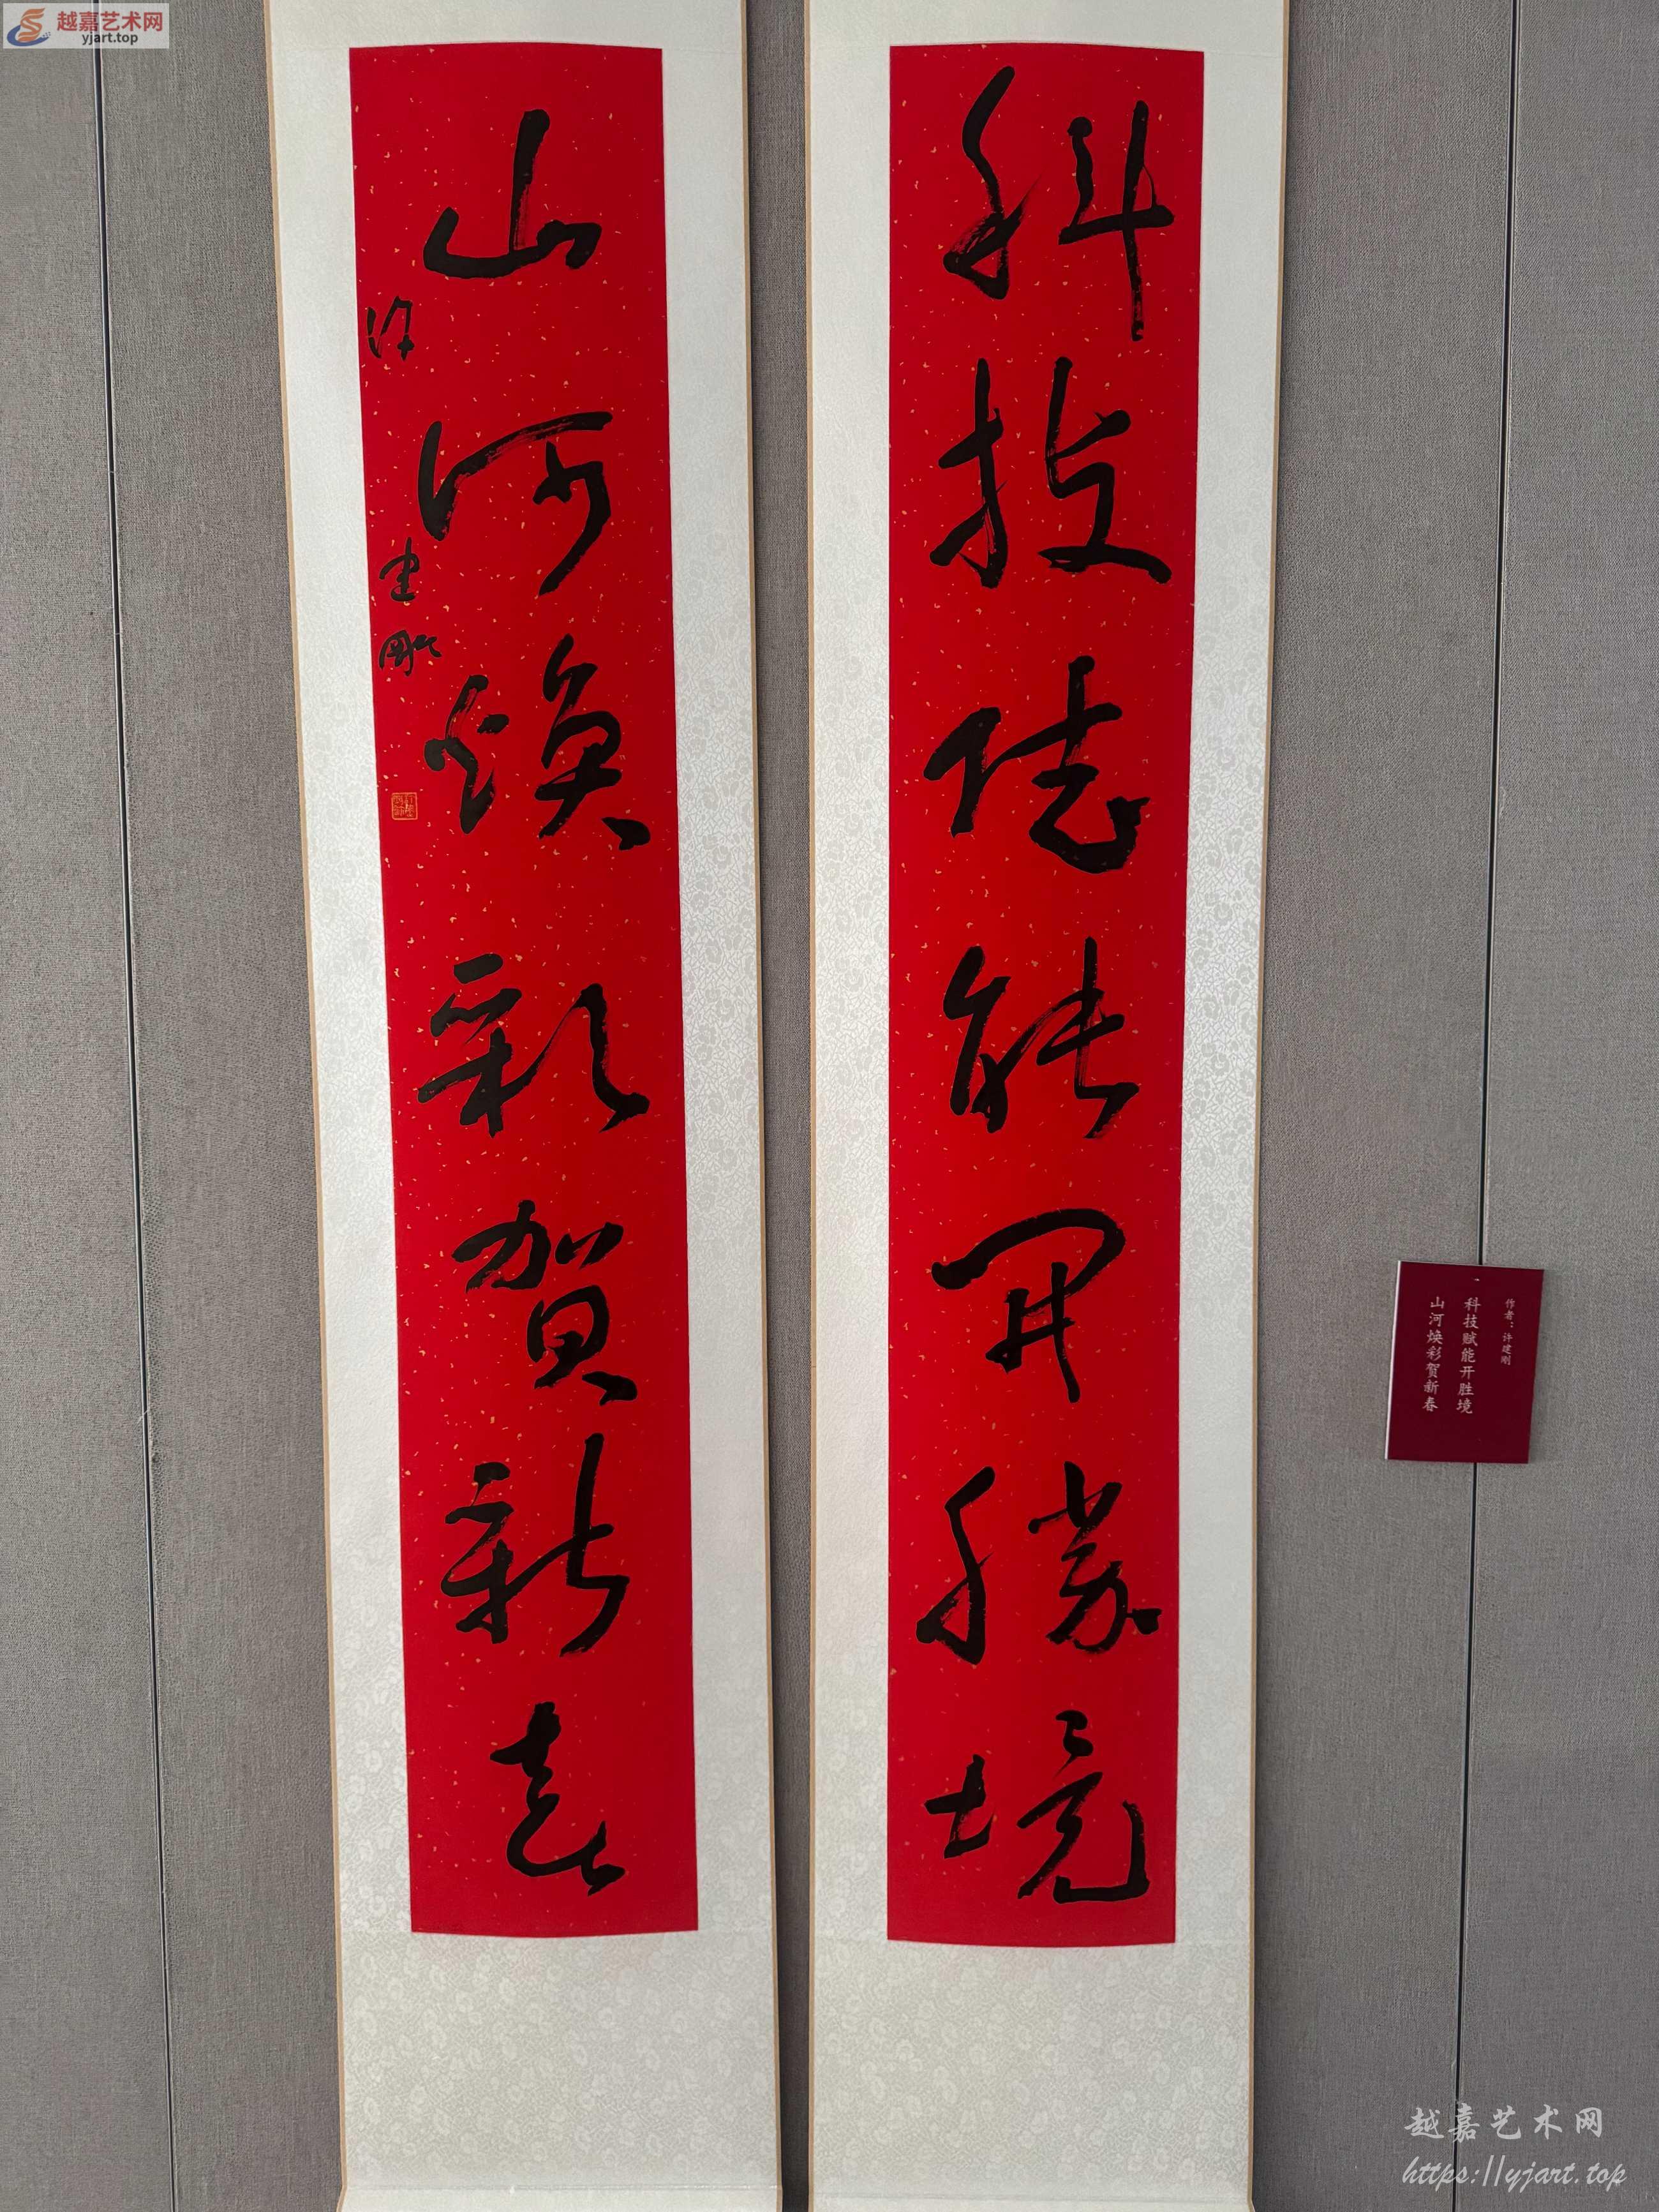 越嘉艺术网
yjart.top
科技赋能開勝境
山河焕彩賀新春
许建剛
作者：许建刚
科技赋能开胜境
山河焕彩贺新春
越嘉艺术网
https://yjart.top